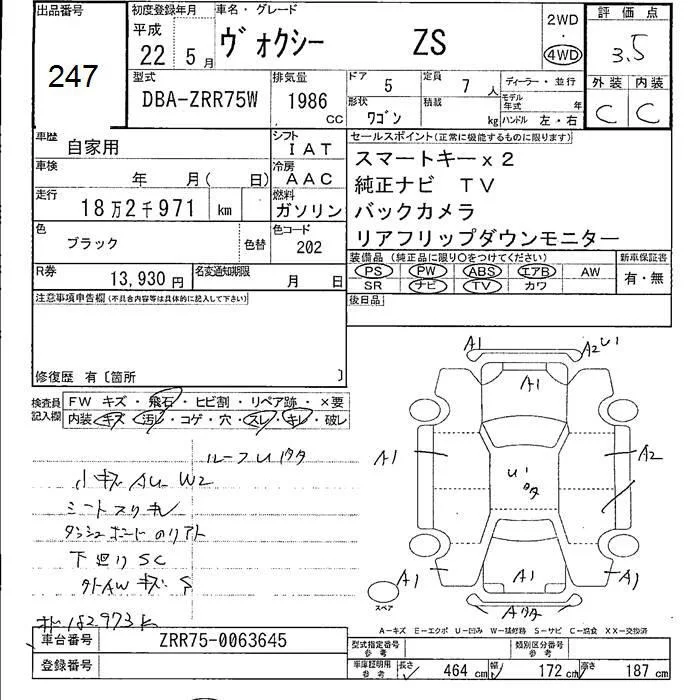 出品番号 初度登録年月 車名・グレード 2WD 評価点
247 平成 22年 5月 ヴォクシー ZS ・ 4WD 3.5
型式 排気量 ドア 5 定員 7人 ディーラー・並行 外装 内装
DBA-ZRR75W 1986 CC 形状 ワゴン 積載 kg モデル年式 年 ハンドル 左・右 C C
車歴 自家用 シフト IAT セールスポイント(正常に機能するものに限ります)
車検 年 月( 日) 冷房 AAC スマートキーx2
走行 18万2千971 km 燃料 ガソリン 純正ナビ TV
バックカメラ
色 ブラック 色替 色コード 202 リアフリップダウンモニター
装備品 (純正品に限り○をつけてください) 新車保証書
R券 13,930円 名変通知期限 月 日 PS PW ABS エアB AW 有・無
SR ナビ TV カワ
注意事項申告欄(不具合内容等は具体的に記入して下さい) 後日品
修復歴 有〔箇所 〕
検査員記入欄 FW キズ・飛石・ヒビ割・リペア跡・×要
内装・キズ・汚レ・コゲ・穴・スレ・キレ・破レ
A1 A2 U1
A1
ルーフU1
小キズ AU W2
A1 U1 A2
シートスリキレ
下廻りSC
A1 A1 A1
スペア
182973K
A-キズ E-エクボ U-凹み W-補修跡 S-サビ C-腐食 XX-交換済
車台番号 ZRR75-0063645 型式指定番号 参考 類別区分番号 参考
登録番号 車庫証明用 参考 長さ 464 cm 幅 172 cm 高さ 187 cm